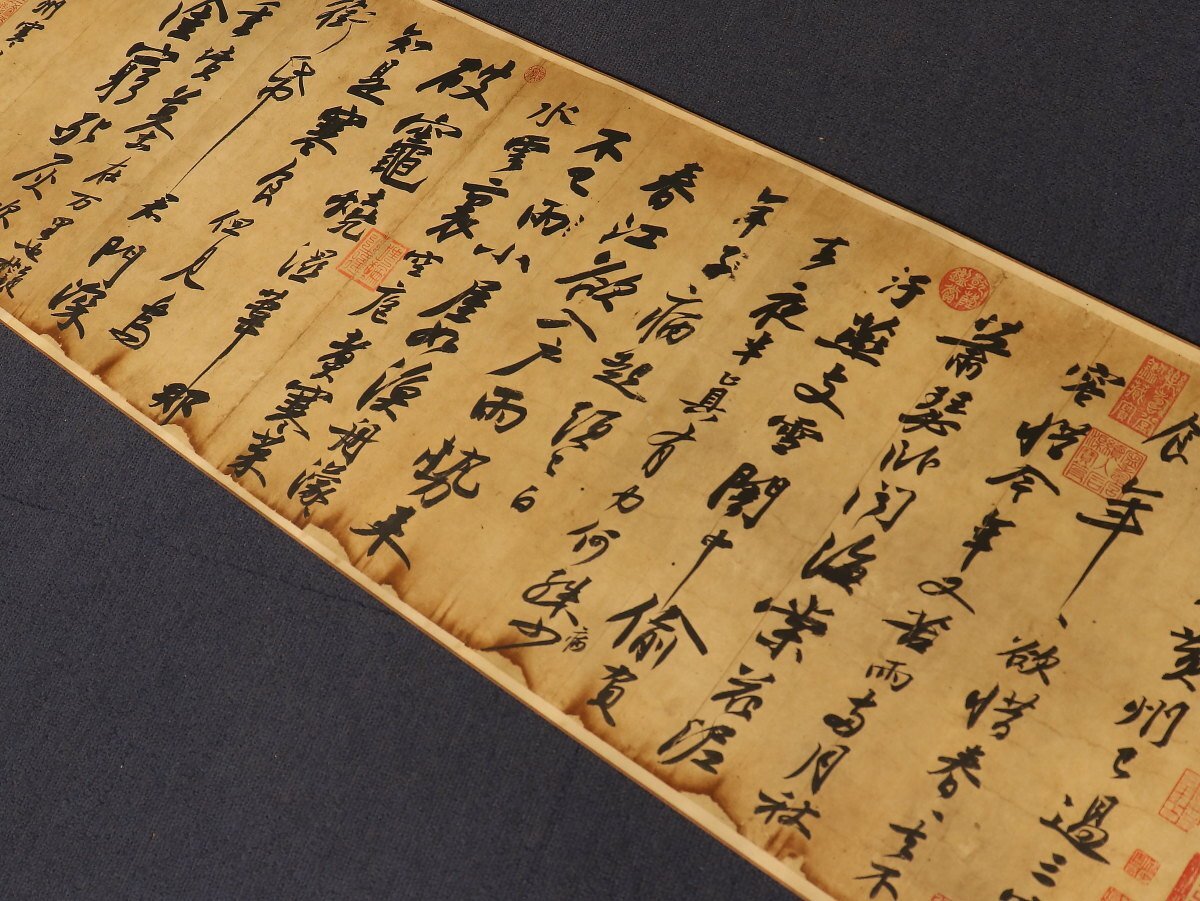 黃州已過三寒
食年〻欲惜春〻去不
容惜今年又苦雨兩月秋
蕭瑟臥聞海棠花泥
汙燕支雪闇中偷負
去夜半真有力何殊病少
年子病起須已白
春江欲入戶雨勢來
不已雨小屋如漁舟濛〻
水雲裏空庖煮寒菜
破竈燒濕葦那
知是寒食但見烏
銜帋君門深
重墳墓在万里也擬
塗窮死灰吹
州寒